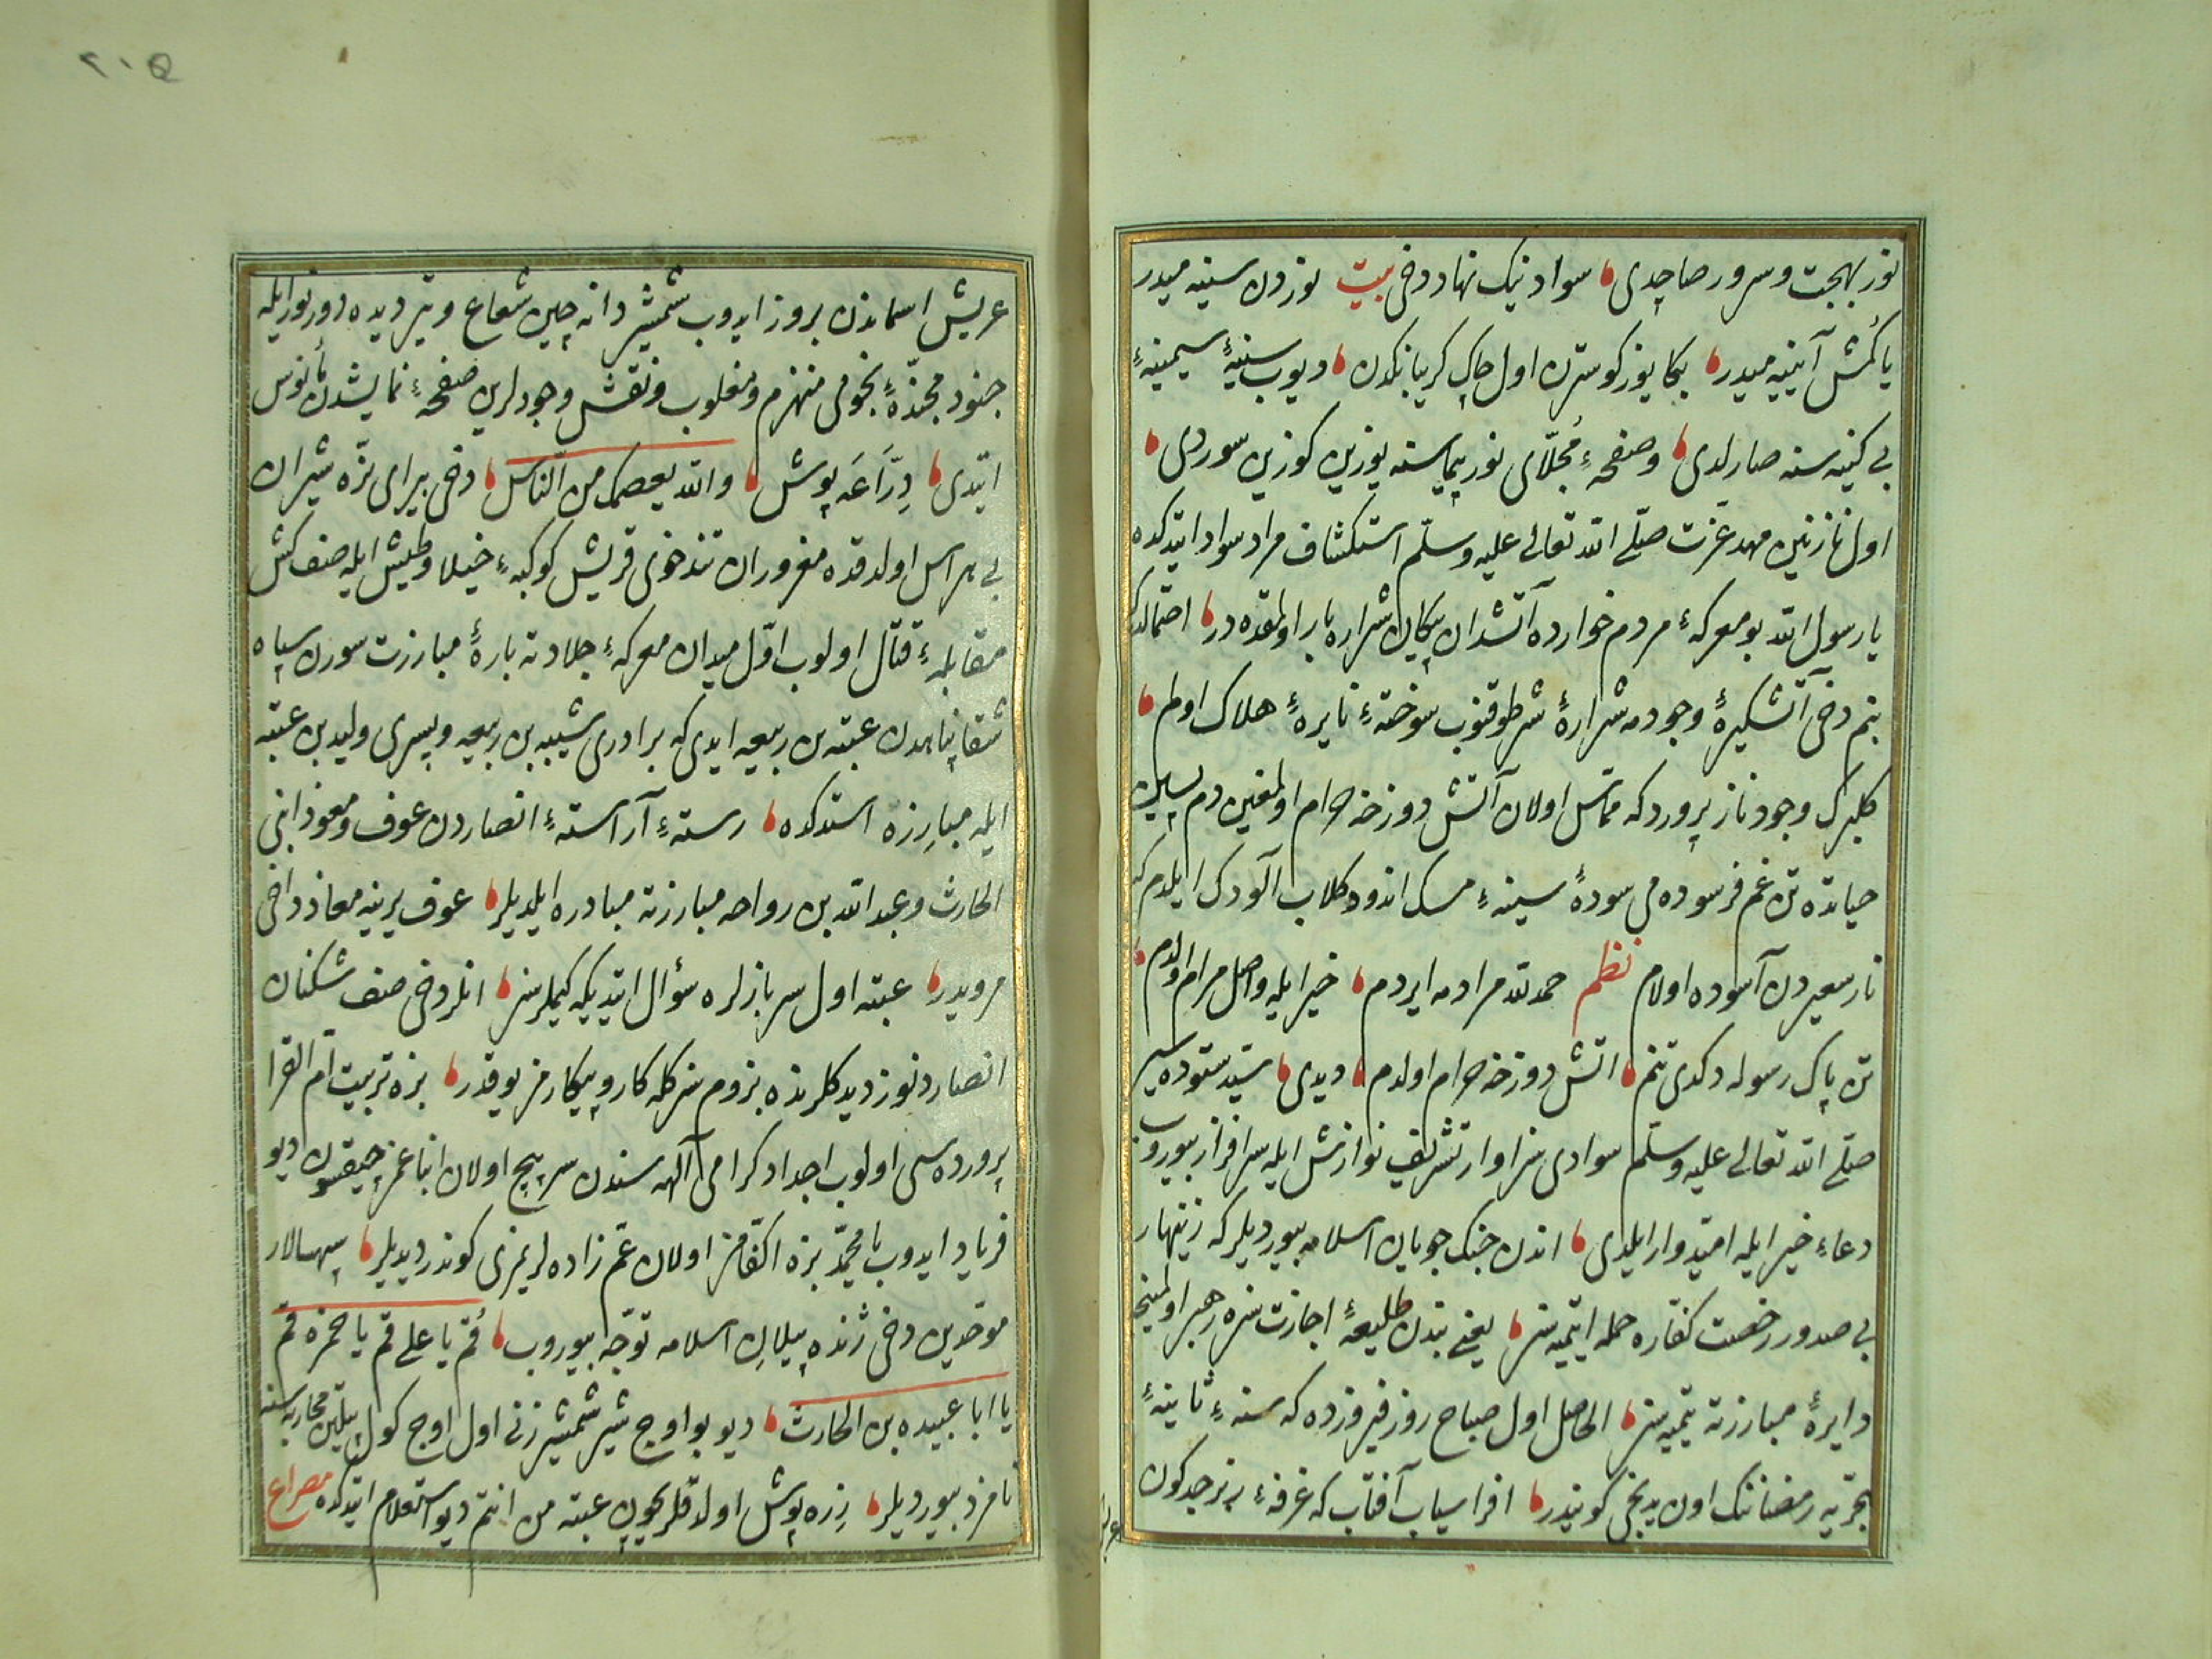 نور بهجت و سرور صاچدی سواد نیک نهاد دخی بیت نوردن سینه میدر
یا کمش آیینه میدر بکا یوز کوسترن اول چاک کریبانکدن دیوب سینهٔ سیمینهٔ
بی کینه سنه صارلدی و صفحهٔ مجلّای نور پیماسنه یوزین کوزین سوردی
اول نازنین مهد عزت صلّی الله تعالی علیه وسلّم استکشاف مراد سواد ایتدکده
یا رسول الله بو معرکهٔ مردم خوارده آتشدان پیکان شراره بار اولمقده در احتمالدر که
بنم دخی آتشکیرهٔ وجودمه شرارهٔ شر طوقنوب سوختهٔ نایرهٔ هلاک اولم
کلبرک وجود ناز پروردکه مماس اولان آتش دوزخه حرام اولمغین دم پسین
حیاتده تن غم فرسوده می سودهٔ سینهٔ مسک اندود کلاب آلودک ایلدم که
نار سعیردن آسوده اولام نظم حمد لله مرادمه ایردم خیر ایله واصل مرام اولدم
تن پاک رسوله دکدی تنم اتش دوزخه حرام اولدم دیدی سیّد ستوده سیر
صلّی الله تعالی علیه وسلّم سوادی سزاوار تشریف نوازش ایله سرافراز بیوروب
دعاء خیر ایله امیّدوار ایلدی اندن جنک جویان اسلامه بیوردیلر که زینهار
بی صدور رخصت کفّاره حمله ایتمیه سز یعنی بندن طلیعهٔ اجازت سزه رهبر اولمینجه
دایرهٔ مبارزته یتمیه سز الحاصل اول صباح روز فیروزده که سنهٔ ثانیهٔ
هجریه رمضاننک اون یدنجی کونیدر افراسیاب آفتاب که غرفهٔ زبرجد کون
عریش
٢٠٥
عریش اسماندن بروز ایدوب شمشیر دانه چین شعاع و تیر دیده دوز نور ایله
جنود مجنّدهٔ نجومی منهزم و مغلوب و نقش وجودلرین صفحهٔ نمایشدن نانوس
ایتدی درّاعه پوش والله یعصمک من النّاس دخی بیرای نرّه شیران
بی هراس اولدقده مغروران تندخوی قریش کوکبهٔ خیلا و طیش ایله صف کش
مقابلهٔ قتال اولوب اوّل میدان معرکهٔ جلادته بارهٔ مبارزت سورن سیاه
شقا پناهدن عتبه بن ربیعه ایدی که برادری شیبه بن ربیعه و پسری ولید بن عتبه
ایله مبارزه استدکده رستهٔ آراستهٔ انصاردن عوف و معوذ ابنی
الحارث و عبد الله بن رواحه مبارزته مبادره ایلدیلر عوف یرینه معاذ دخی
مرویدر عتبه اول سربازلره سؤال ایتدیکه کیملرسز انلر دخی صف شکنان
انصاردنوز دیدکلرنده بزوم سزکله کار و پیکارمز یوقدر بزه تربیت ام القرا
پرورده سی اولوب اجداد کرامی آلهه سندن سرپیچ اولان ابنا عمز چیقسون دیو
فریاد ایدوب یا محمّد بزه اکفامز اولان عم زاده لریمزی کوندر دیدیلر سپهسالار
موحّدین دخی ژنده پیلان اسلامه توجّه بیوروب قم یا علی قم یا حمزه قم
یا ابا عبیده بن الحارث دیو بو اوچ شیر شمشیر زنی اول اوچ کول پیلتین محاربه سنه
نامزد بیوردیلر زره پوش اولدقلریچون عتبه من انتم دیو استعلام ایتدکده مصراع